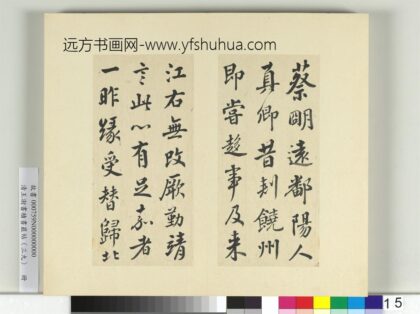 远方书画网-www.yfshuhua.com
蔡明遠鄱陽人
真卿昔刺饒州
即嘗趍事及来
江右無改厥勤靖
言此心有足嘉者
一昨緣受替歸北
故書000759N000000000
15